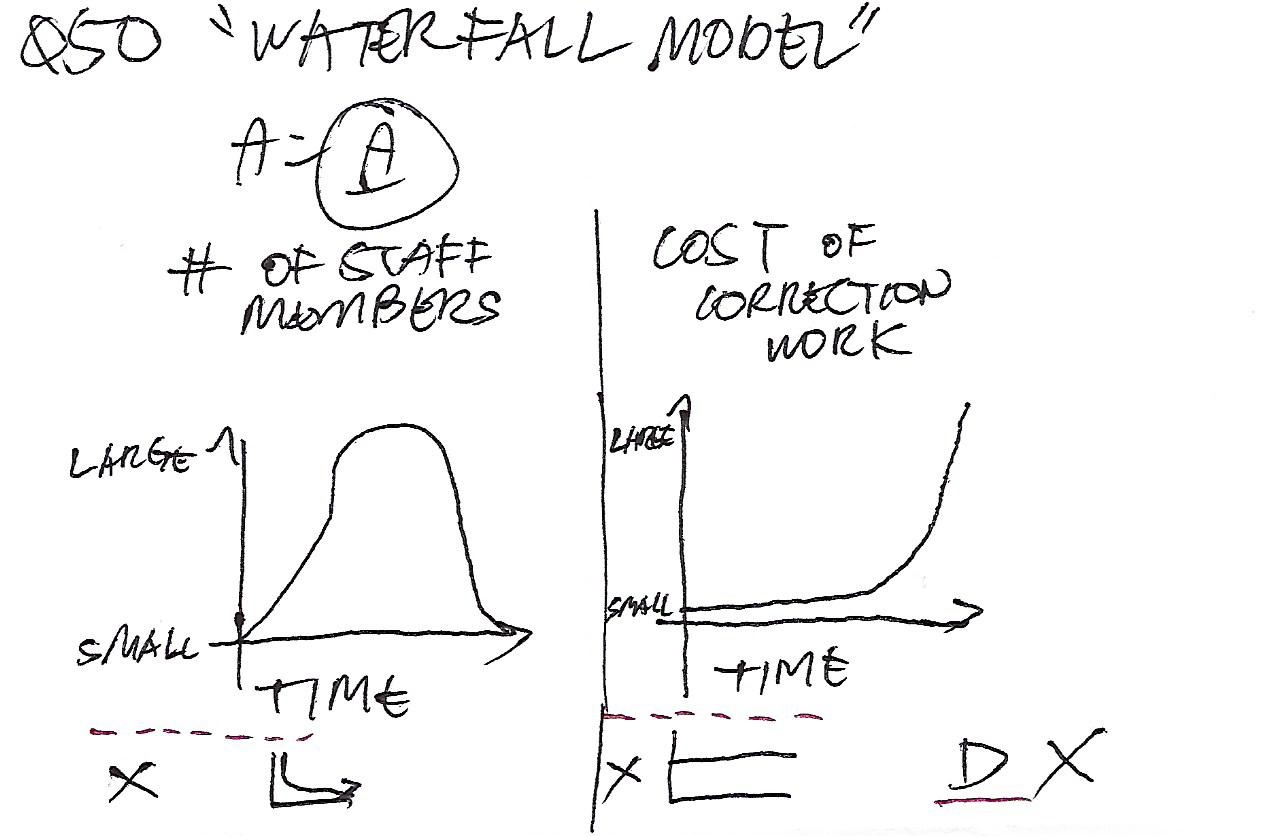 Q50 "WATERFALL MODEL"
A = A
# OF STAFF
MEMBERS
LARGE
SMALL
TIME
X
COST OF
CORRECTION
WORK
LARGE
SMALL
TIME
X
D X